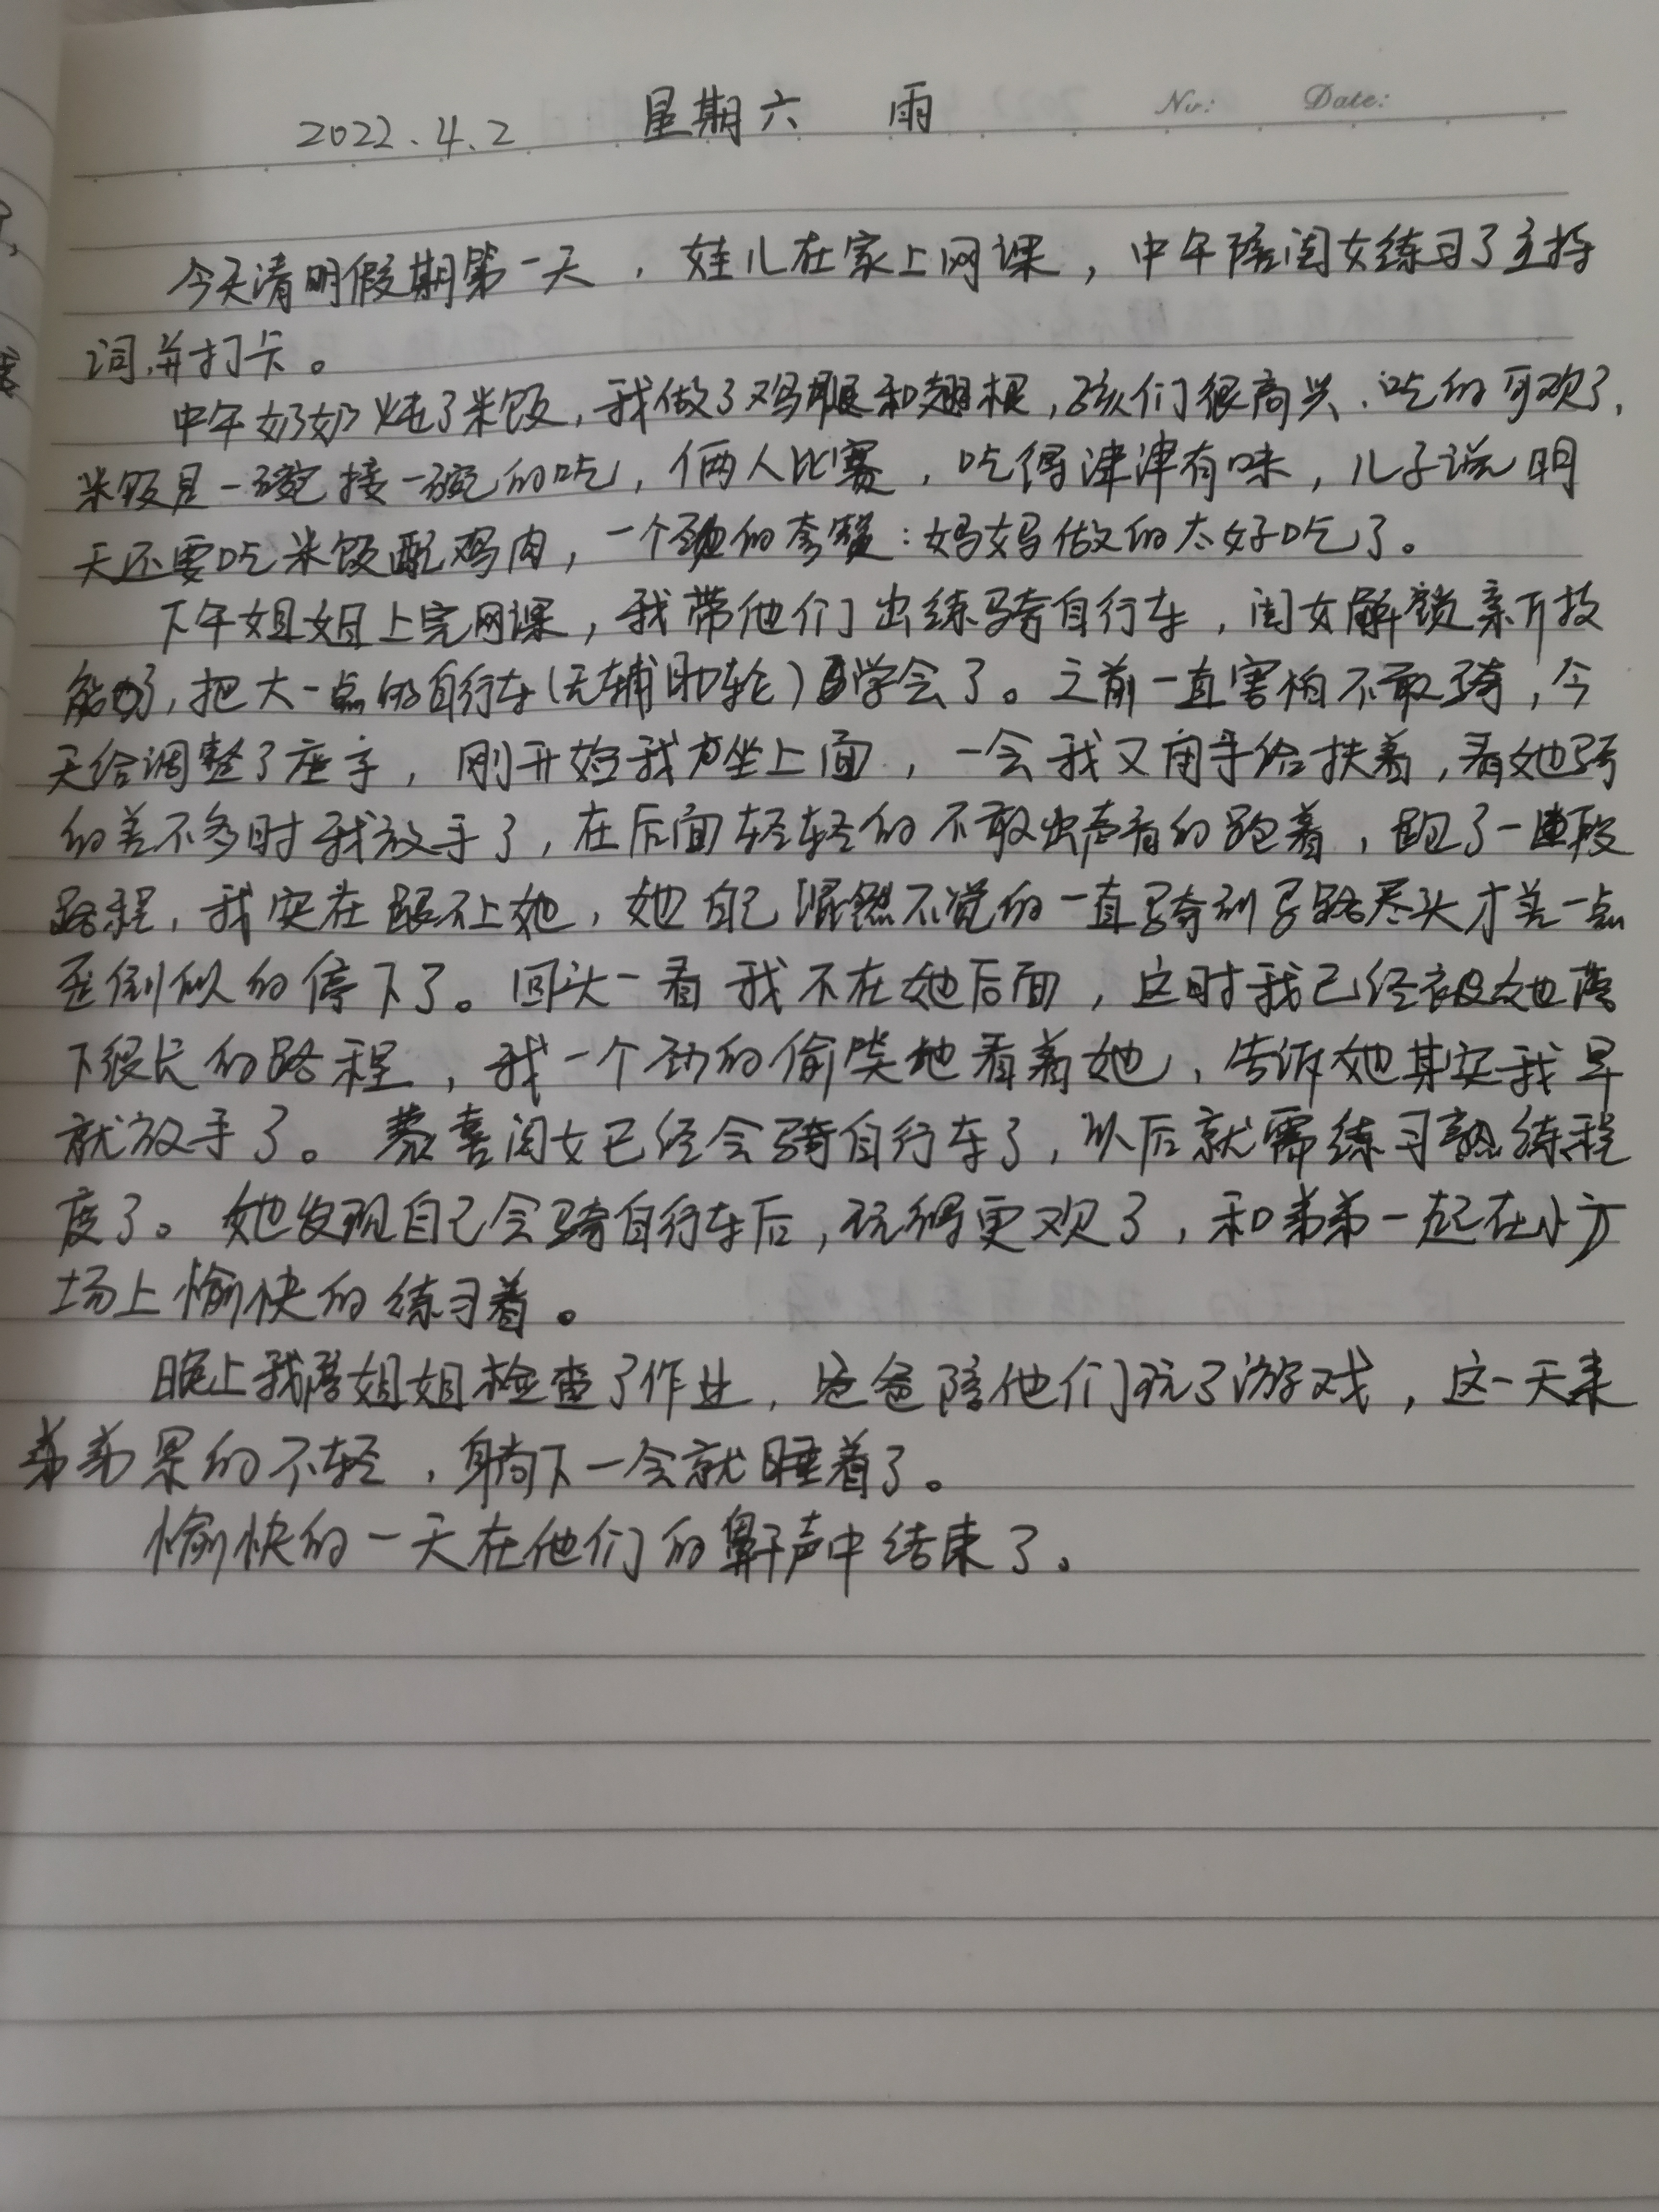 2022.4.2 星期六 雨 No: Date:
今天清明假期第一天，娃儿在家上网课，中午陪闺女练习了主持
词并打卡。
中午奶奶炖了米饭，我做了鸡腿和翅根，孩们很高兴，吃的可欢了，
米饭是一碗接一碗的吃，俩人比赛，吃得津津有味，儿子说明
天还要吃米饭配鸡肉，一个劲的夸赞：妈妈做的太好吃了。
下午姐姐上完网课，我带他们出练骑自行车，闺女解锁新技
能了，把大一点的自行车(无辅助轮)学会了。之前一直害怕不敢骑，今
天给调整了座子，刚开始我力坐上面，一会我又用手给扶着，看她骑
的差不多时我放手了，在后面轻轻的不敢出声音的跑着，跑了一段
路程，我实在跟不上她，她自己浑然不觉的一直骑到马路尽头才差一点
歪倒似的停下了。回头一看我不在她后面，这时我已经被她落
下很长的路程，我一个劲的偷笑地看着她，告诉她其实我早
就放手了。恭喜闺女已经会骑自行车了，以后就需练习熟练程
度了。她发现自己会骑自行车后，玩得更欢了，和弟弟一起在小广
场上愉快的练习着。
晚上我陪姐姐检查了作业，爸爸陪他们玩了游戏，这一天来
弟弟累的不轻，躺下一会就睡着了。
愉快的一天在他们的鼾声中结束了。